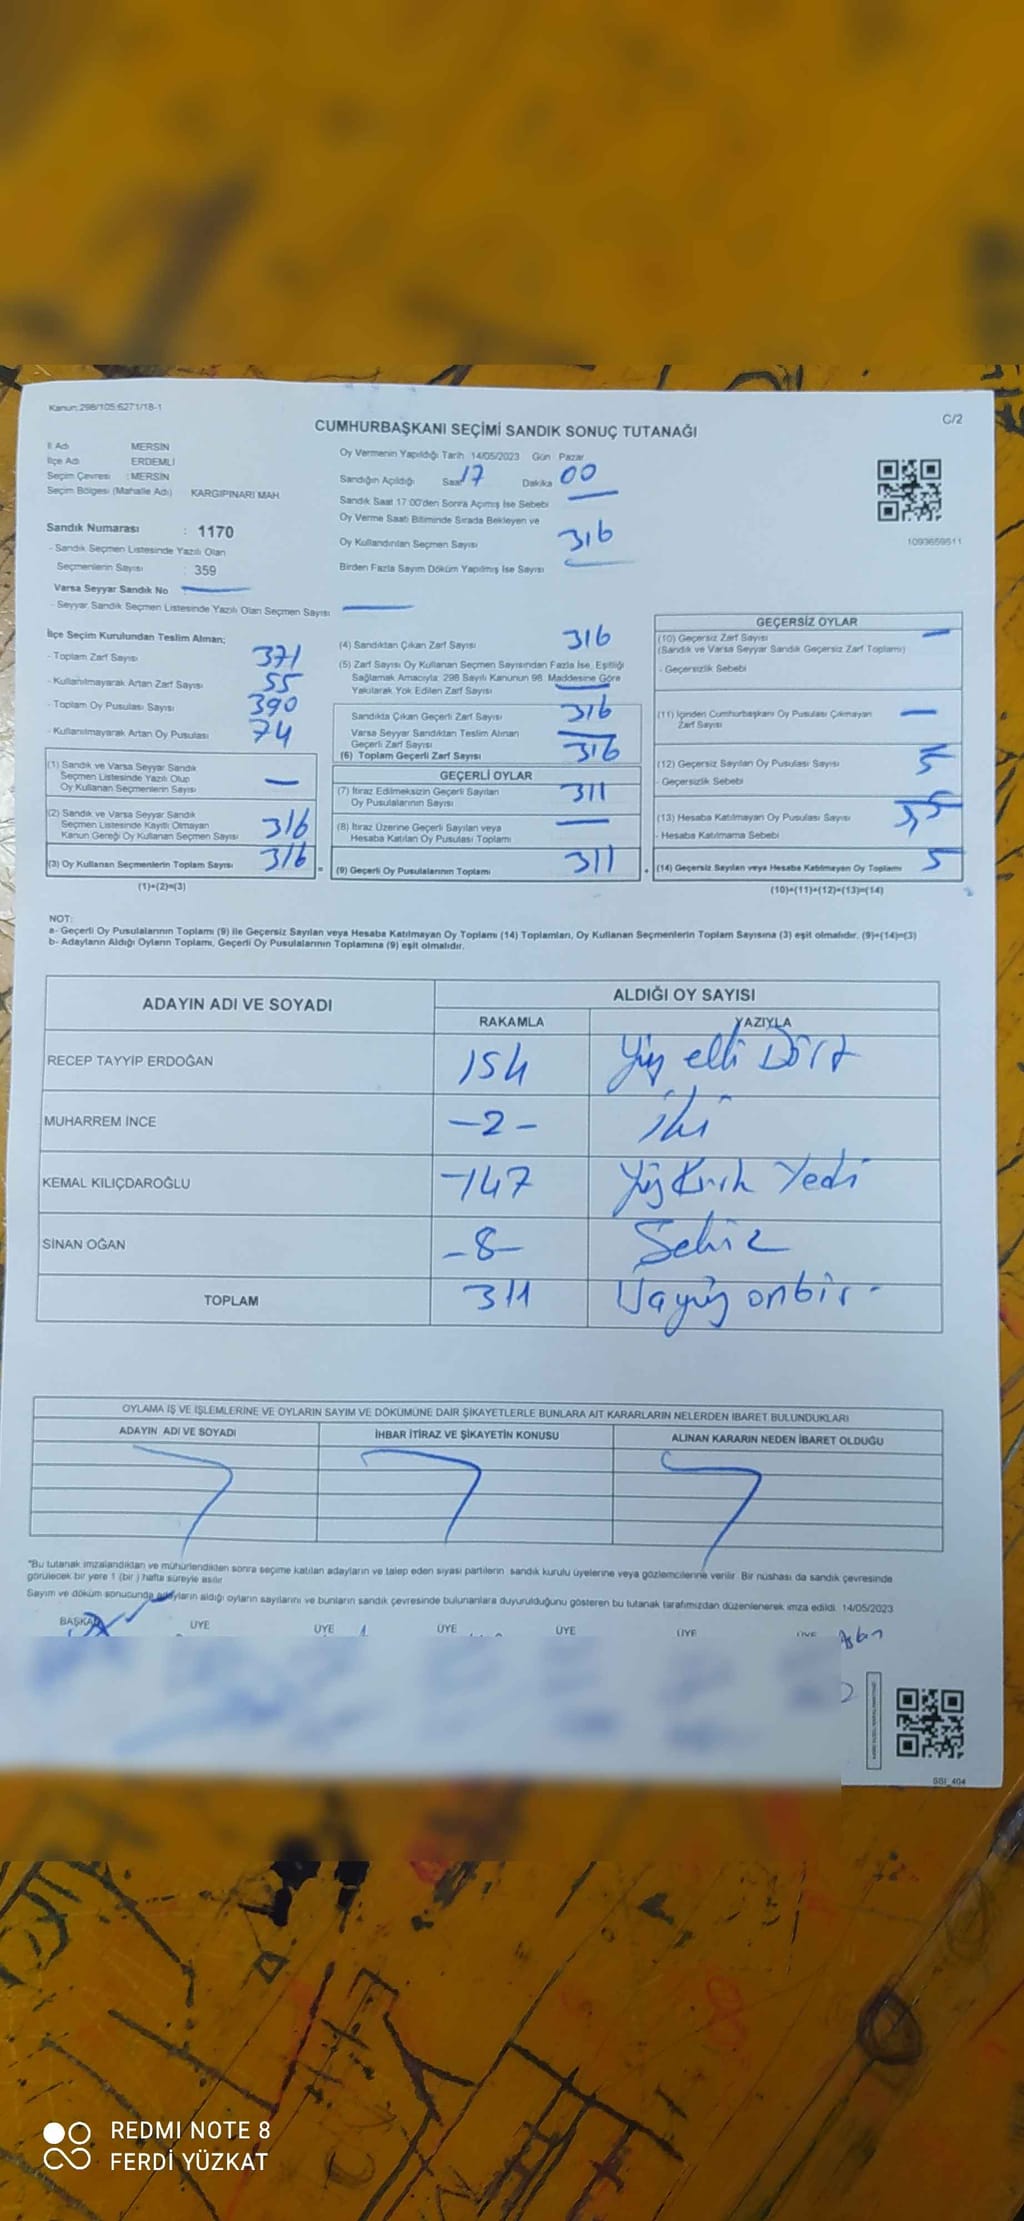 Kanun:298/105.6271/18-1
C/2
CUMHURBAŞKANI SEÇİMİ SANDIK SONUÇ TUTANAĞI
İl Adı MERSİN
İlçe Adı ERDEMLİ
Seçim Çevresi : MERSİN
Seçim Bölgesi (Mahalle Adı) KARGIPINARI MAH.
Sandık Numarası : 1170
- Sandık Seçmen Listesinde Yazılı Olan
Seçmenlerin Sayısı : 359
Varsa Seyyar Sandık No
- Seyyar Sandık Seçmen Listesinde Yazılı Olan Seçmen Sayısı
Oy Vermenin Yapıldığı Tarih 14/05/2023 Gün Pazar
Sandığın Açıldığı Saat 17 Dakika 00
Sandık Saat 17:00'den Sonra Açımış İse Sebebi
Oy Verme Saati Bitiminde Sırada Bekleyen ve
Oy Kullandırılan Seçmen Sayısı 316
Birden Fazla Sayım Döküm Yapılmış İse Sayısı
1093659511
İlçe Seçim Kurulundan Teslim Alınan;
- Toplam Zarf Sayısı 371
- Kullanılmayarak Artan Zarf Sayısı 55
- Toplam Oy Pusulası Sayısı 390
- Kullanılmayarak Artan Oy Pusulası 74
(1) Sandık ve Varsa Seyyar Sandık
Seçmen Listesinde Yazılı Olup
Oy Kullanan Seçmenlerin Sayısı —
(2) Sandık ve Varsa Seyyar Sandık
Seçmen Listesinde Kayıtlı Olmayan
Kanun Gereği Oy Kullanan Seçmen Sayısı 316
(3) Oy Kullanan Seçmenlerin Toplam Sayısı 316
(1)+(2)=(3)
(4) Sandıktan Çıkan Zarf Sayısı 316
(5) Zarf Sayısı Oy Kullanan Seçmen Sayısından Fazla İse, Eşitliği
Sağlamak Amacıyla, 298 Sayılı Kanunun 98. Maddesine Göre
Yakılarak Yok Edilen Zarf Sayısı
Sandıkta Çıkan Geçerli Zarf Sayısı 316
Varsa Seyyar Sandıktan Teslim Alınan
Geçerli Zarf Sayısı
(6) Toplam Geçerli Zarf Sayısı 316
GEÇERLİ OYLAR
(7) İtiraz Edilmeksizin Geçerli Sayılan
Oy Pusulalarının Sayısı 311
(8) İtiraz Üzerine Geçerli Sayılan veya
Hesaba Katılan Oy Pusulası Toplamı —
(9) Geçerli Oy Pusulalarının Toplamı 311
GEÇERSİZ OYLAR
(10) Geçersiz Zarf Sayısı —
(Sandık ve Varsa Seyyar Sandık Geçersiz Zarf Toplamı)
- Geçersizlik Sebebi
(11) İçinden Cumhurbaşkanı Oy Pusulası Çıkmayan
Zarf Sayısı —
(12) Geçersiz Sayılan Oy Pusulası Sayısı 5
- Geçersizlik Sebebi
(13) Hesaba Katılmayan Oy Pusulası Sayısı
- Hesaba Katılmama Sebebi
(14) Geçersiz Sayılan veya Hesaba Katılmayan Oy Toplamı 5
(10)+(11)+(12)+(13)=(14)
NOT:
a- Geçerli Oy Pusulalarının Toplamı (9) ile Geçersiz Sayılan veya Hesaba Katılmayan Oy Toplamı (14) Toplamları, Oy Kullanan Seçmenlerin Toplam Sayısına (3) eşit olmalıdır. (9)+(14)=(3)
b- Adayların Aldığı Oyların Toplamı, Geçerli Oy Pusulalarının Toplamına (9) eşit olmalıdır.
ADAYIN ADI VE SOYADI
ALDIĞI OY SAYISI
RAKAMLA YAZIYLA
RECEP TAYYİP ERDOĞAN 154 Yüz elli Dört
MUHARREM İNCE -2- iki
KEMAL KILIÇDAROĞLU -147 Yüz Kırk Yedi
SİNAN OĞAN -8- Sekiz
TOPLAM 311 Üçyüz onbir
OYLAMA İŞ VE İŞLEMLERİNE VE OYLARIN SAYIM VE DÖKÜMÜNE DAİR ŞİKAYETLERLE BUNLARA AİT KARARLARIN NELERDEN İBARET BULUNDUKLARI
ADAYIN ADI VE SOYADI İHBAR İTİRAZ VE ŞİKAYETİN KONUSU ALINAN KARARIN NEDEN İBARET OLDUĞU
"Bu tutanak imzalandıktan ve mühürlendikten sonra seçime katılan adayların ve talep eden siyasi partilerin sandık kurulu üyelerine veya gözlemcilerine verilir. Bir nüshası da sandık çevresinde
görülecek bir yere 1 (bir ) hafta süreyle asılır.
Sayım ve döküm sonucunda adayların aldığı oyların sayılarını ve bunların sandık çevresinde bulunanlara duyurulduğunu gösteren bu tutanak tarafımızdan düzenlenerek imza edildi. 14/05/2023
BAŞKAN ÜYE ÜYE ÜYE ÜYE ÜYE ÜYE
SSI_404
REDMI NOTE 8
FERDİ YÜZKAT